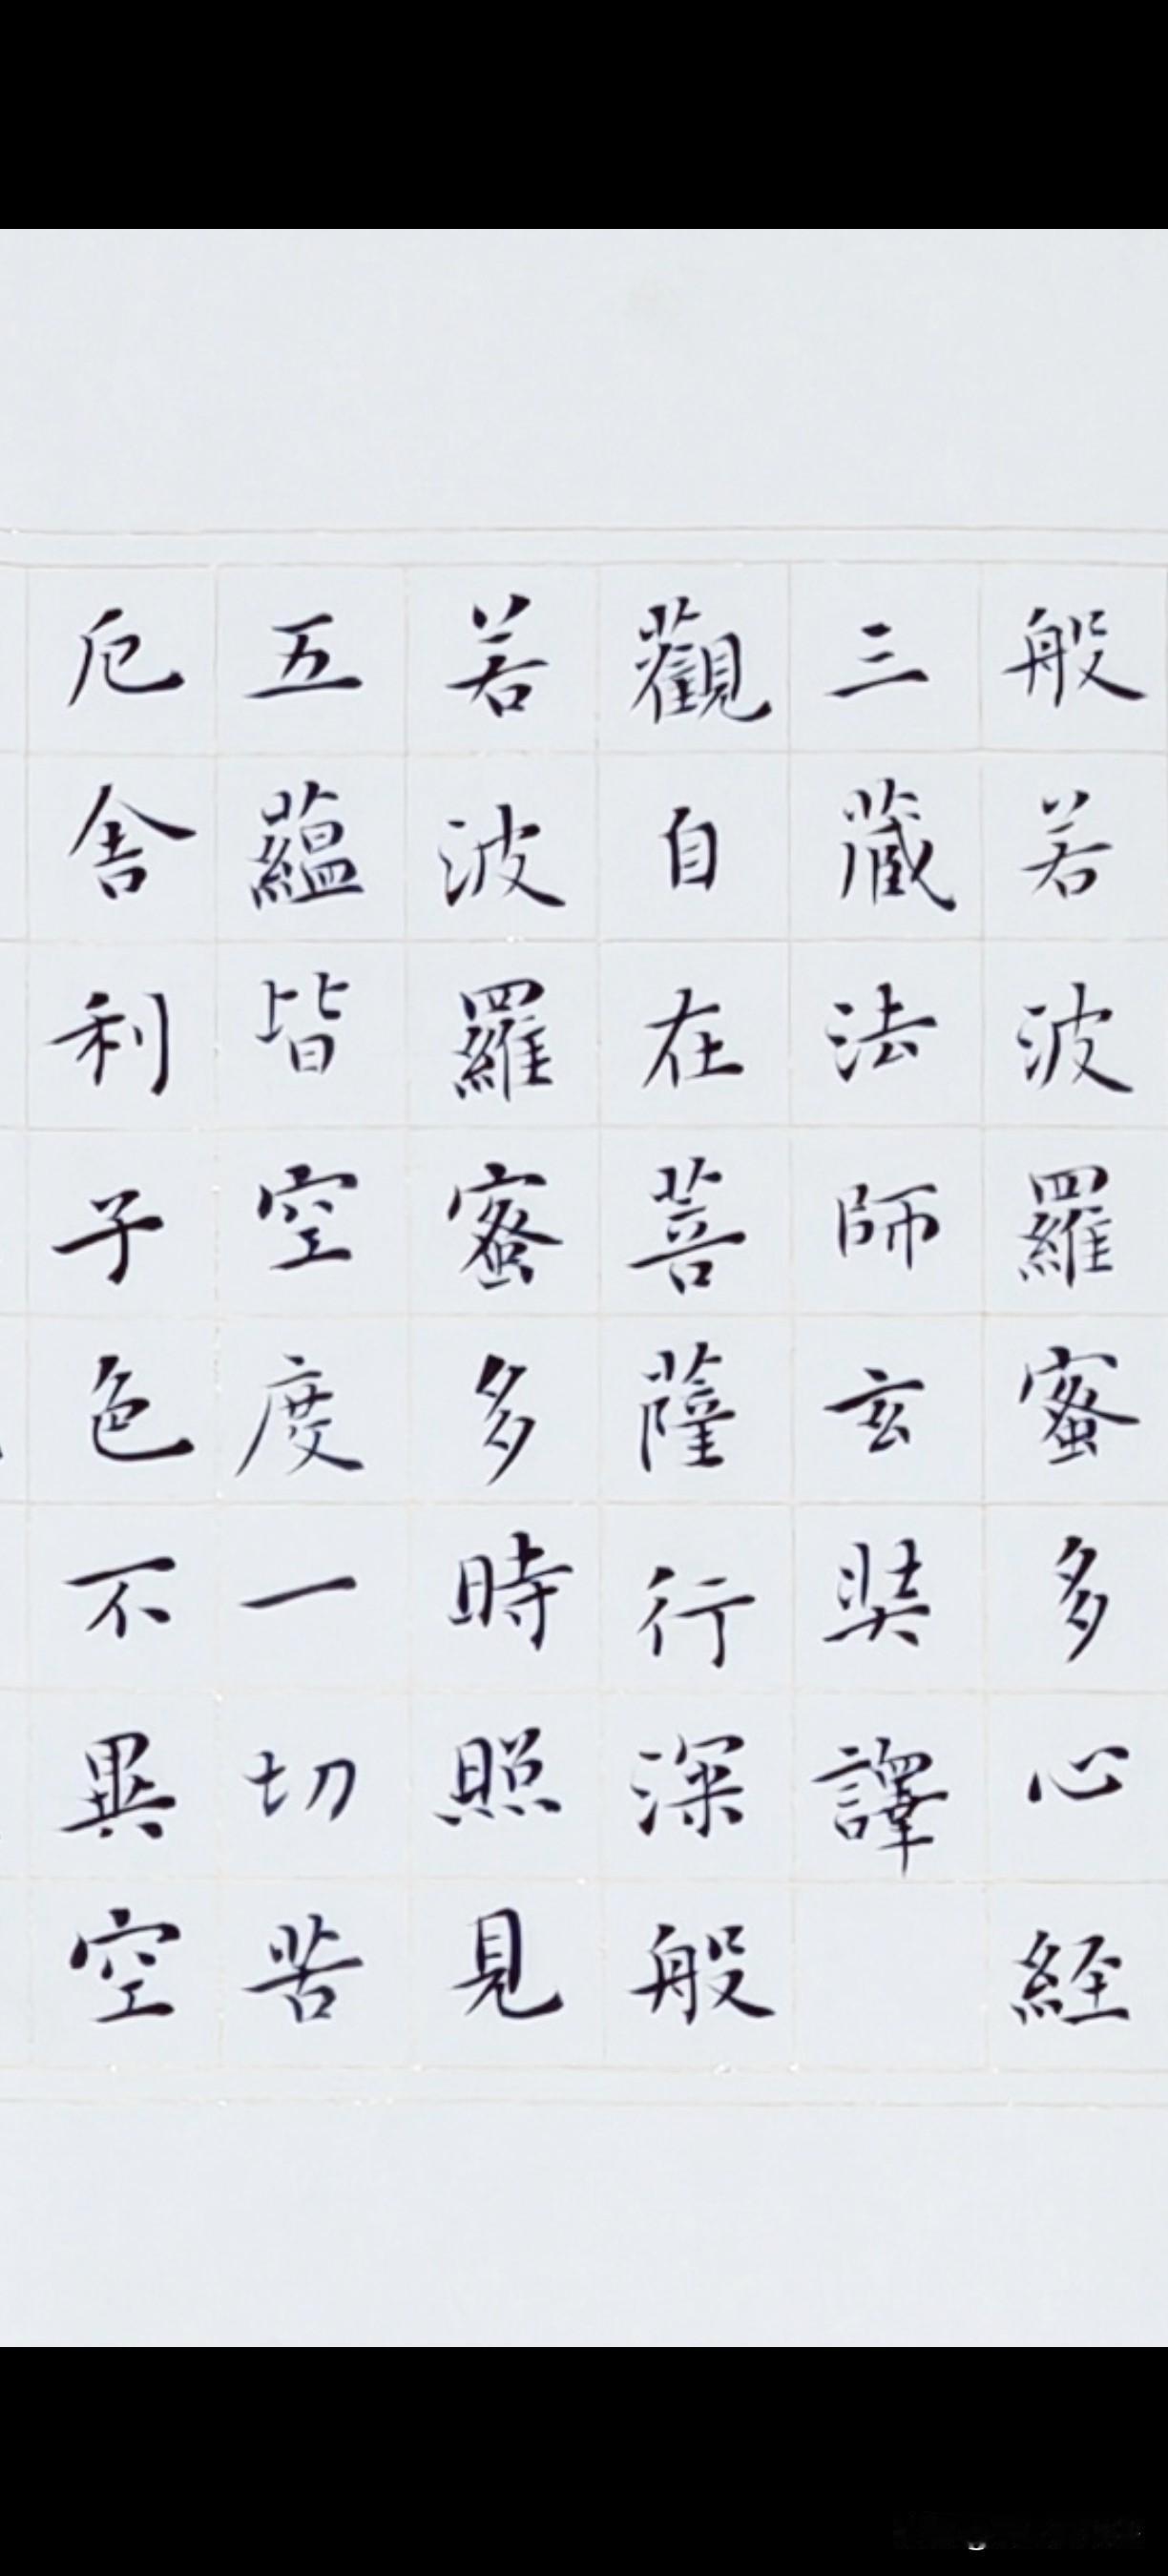 般若波羅蜜多心経
三藏法師玄奘譯
觀自在菩薩行深般
若波羅蜜多時照見
五蘊皆空度一切苦
厄舎利子色不異空